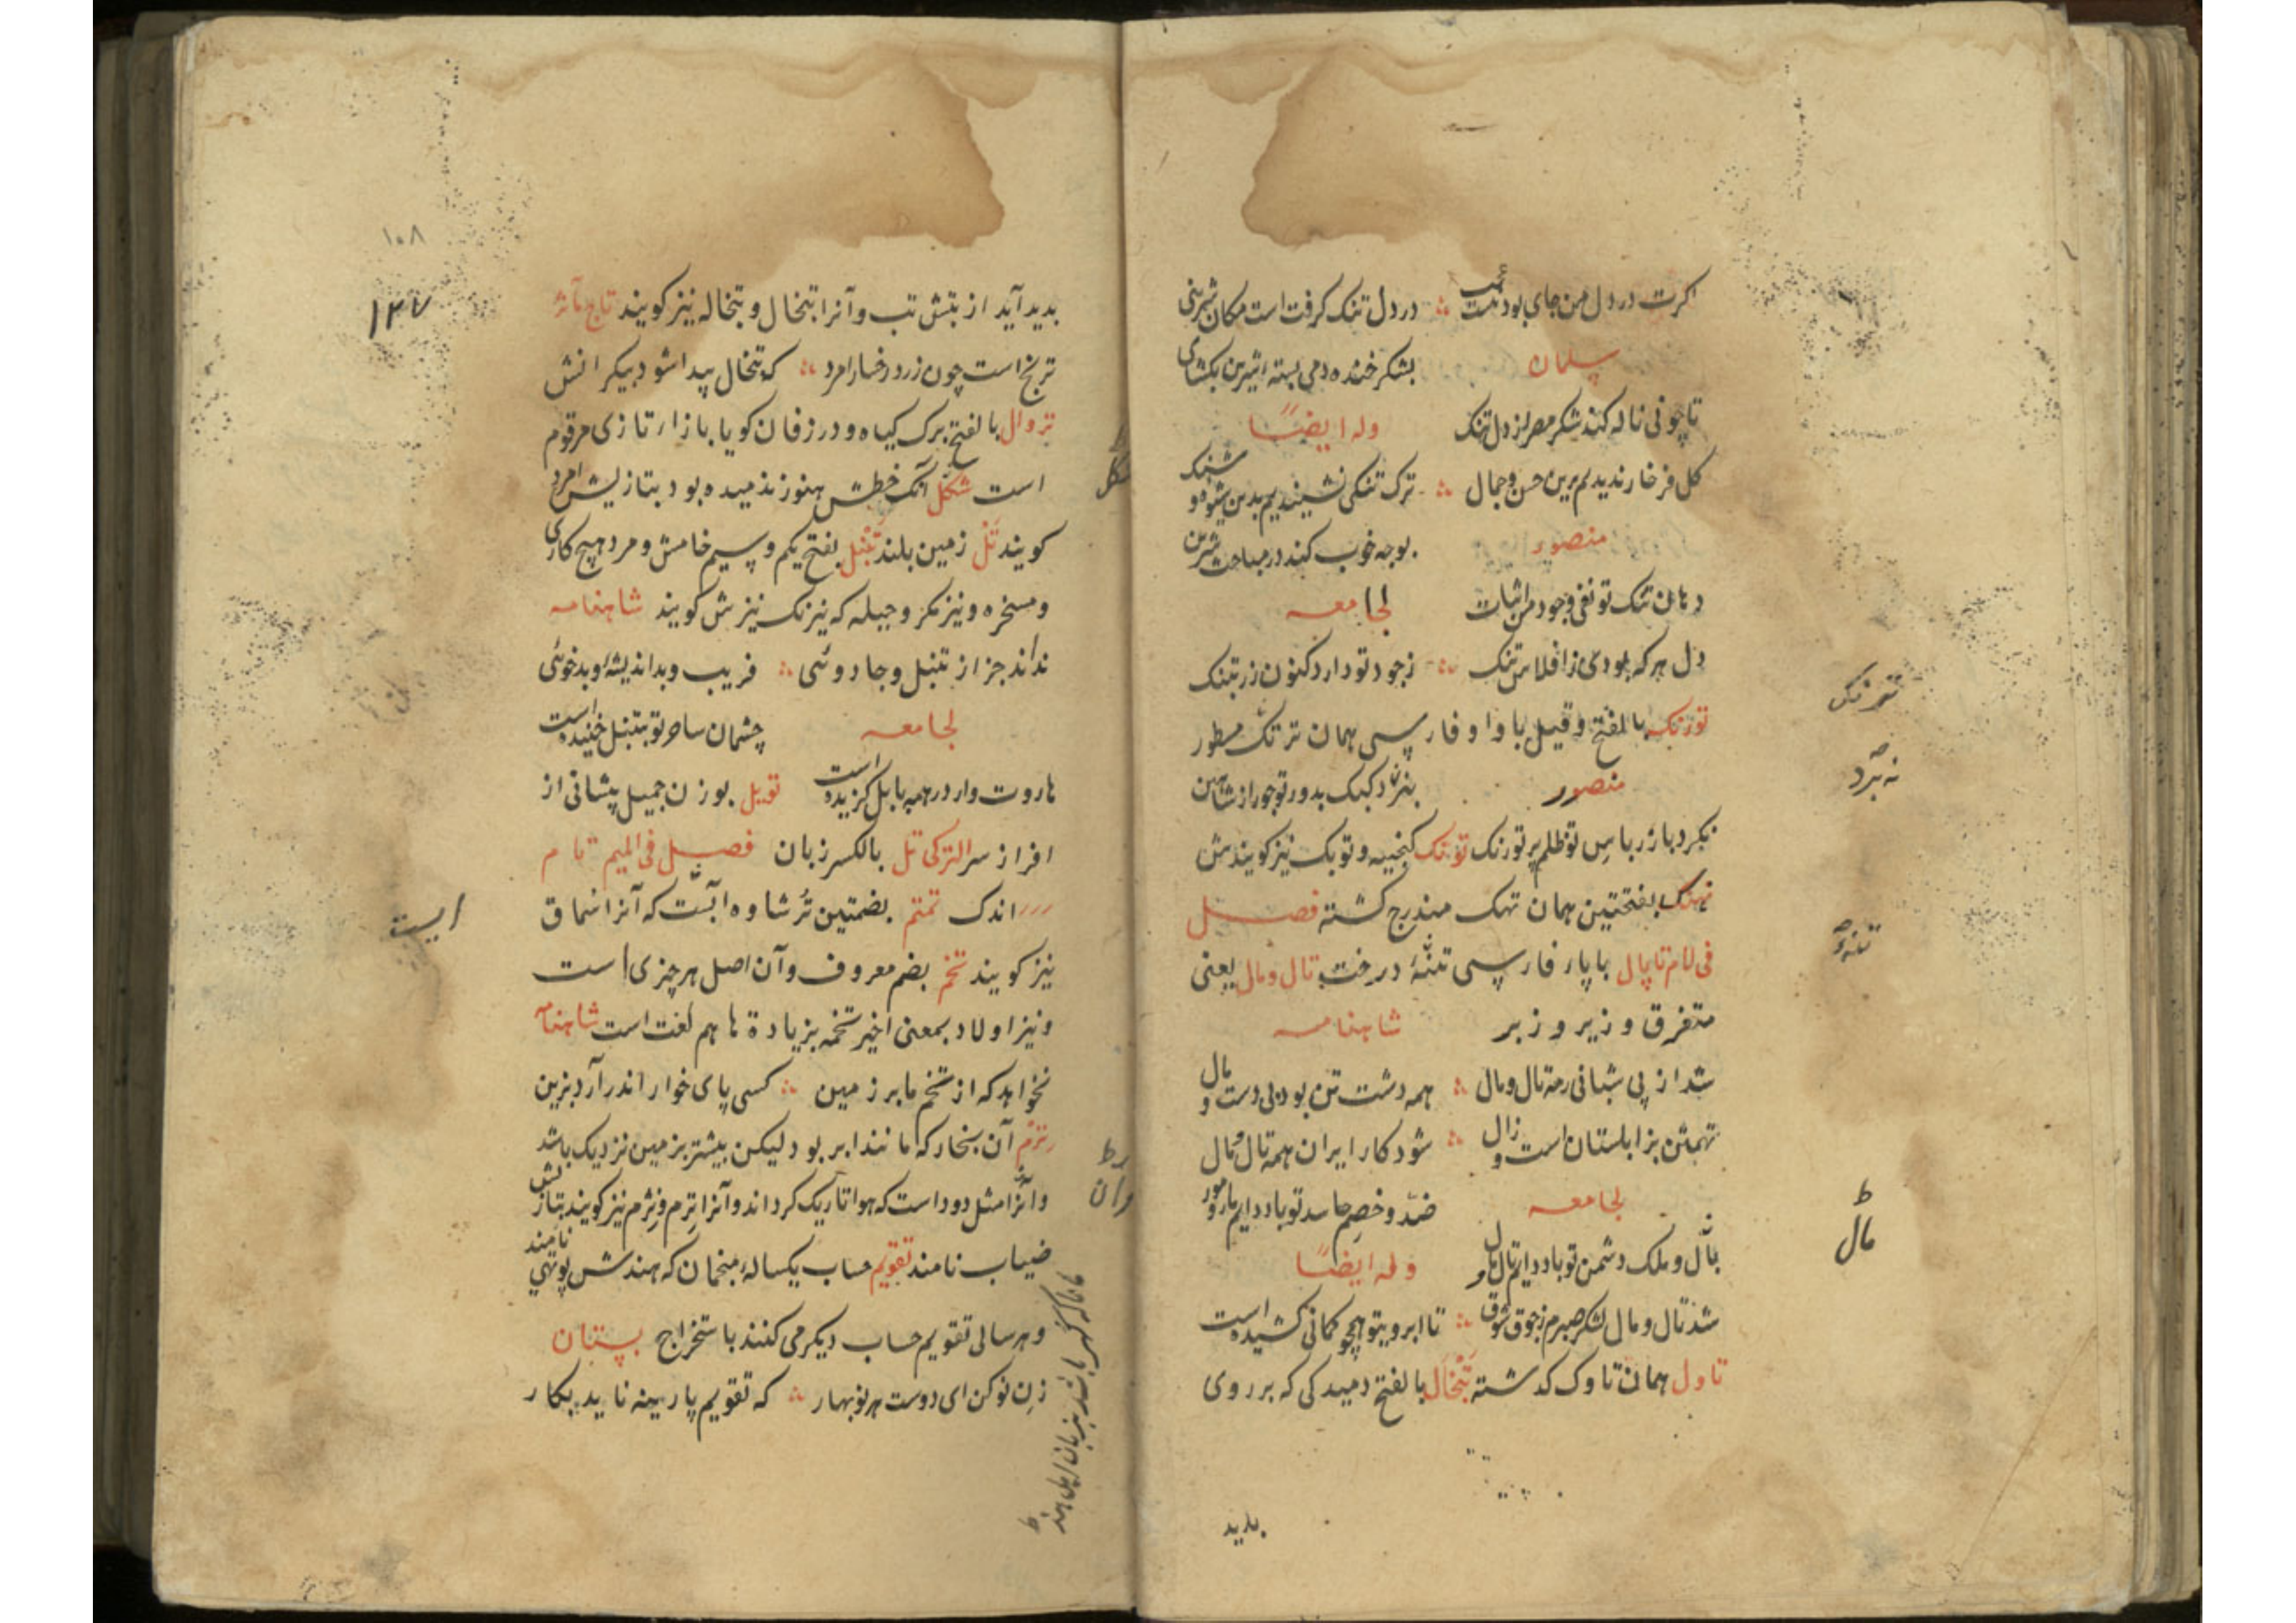 اکرت در دل من جای بود نیست عجب ؞ در دل تنک کرفت است مکان شیرینی
سلمان بشکر خنده دمی بسته شیرین بکشای
تا چو نی ناله کند شکر مصر از دل تنک وله ایضًا
کل فرخار ندیدم برین حسن و جمال ؞ ترک تنکی نشنیدیم بدین شیوه و شنک
منصور بوجه خوب کند در مباحث شیرین
دهان تنک تو نفی وجود من اثبات لجامعه
دل هر که بودی ز افلاس تنک ؞ ز جود تو دارد کنون زر بتنک
تورنک بالفتح و قیل با واو فارسی همان ترنک مسطور
منصور بنژاد کبک بدور تو جور از شاهین
نکرد باز ز باس تو ظلم بر تورنک توتک کنجینه و توبک نیز کویندش
تهنک بفتحتین همان تهک مندرج کشته فصل
فی لام تاپال با پاء فارسی تنهٔ درخت تال و مال یعنی
متفرق و زیر و زبر شاهنامه
شد از بی شبانی رمه تال و مال ؞ همه دشت تن بود بی دست و یال
تهمتن بزابلستان است و زال ؞ شود کار ایران همه تال و مال
لجامعه ضد و خصم حاسد تو باد دایم مار و مور
مال و ملک دشمن تو باد دایم تال و مال وله ایضًا
شد تال و مال لشکر صبرم ز جوق شوق ؞ تا ابروی تو همچو کمانی کشیده است
تاول همان تاوک کدشته تبخال بالفتح دمیدکی که بر روی
بدید
تنه
مال
ط
۱۰۸
۱۲۷
بدید آید از تبش تب و آنرا تبخال و تبخاله نیز کویند تاج مآثر
ترنج است چون زرد رخسار امرد ؞ که تبخال پیدا شود بیکرانش
تروال بالفتح برک کیاه و در زفان کویا با زاء تازی مرقوم
است تکل آنک خطش هنوز ندمیده بود بتازیش امرد
کویند تل زمین بلند تنبل بفتح یکم و سیم خامش و مرد هیچ کاری
و مسخره و نیز مکر و حیله که نیرنک نیزش کویند شاهنامه
نداند جز از تنبل و جادوئی ؞ فریب و بداندیشهٔ و بدخوئی
لجامعه چشمان ساحر تو بتنبل خنیده است
هاروت وار در همه بابل کزیده است تویل بوزن جمیل پیشانی از
افراز سر الترکی تل بالکسر زبان فصل فی المیم تام
اندک تمتم بضمتین ترشاوه آبست که آنرا سماق
نیز کویند تخم بضم معروف و آن اصل هر چیزی است
و نیز اولاد بمعنی اخیر تخمه بزیادة ها هم لغت است شاهنامه
نخواهد که از تخم ما بر زمین ؞ کسی پای خوار اندر آرد بزین
تزم آن بخار که مانند ابر بود لیکن بیشتر بزمین نزدیک باشد
و آنرا مثل دود است که هوا تاریک کرداند و آنرا نزم و نژم نیز کویند بتازیش
ضباب نامند تقویم حساب یکسالهٔ منجمان که هندش پوتهی نامند
و هر سالی تقویم حساب دیکر می کنند باستخراج بستان
زن نو کن ای دوست هر نوبهار ؞ که تقویم پارینه ناید بکار
ایست